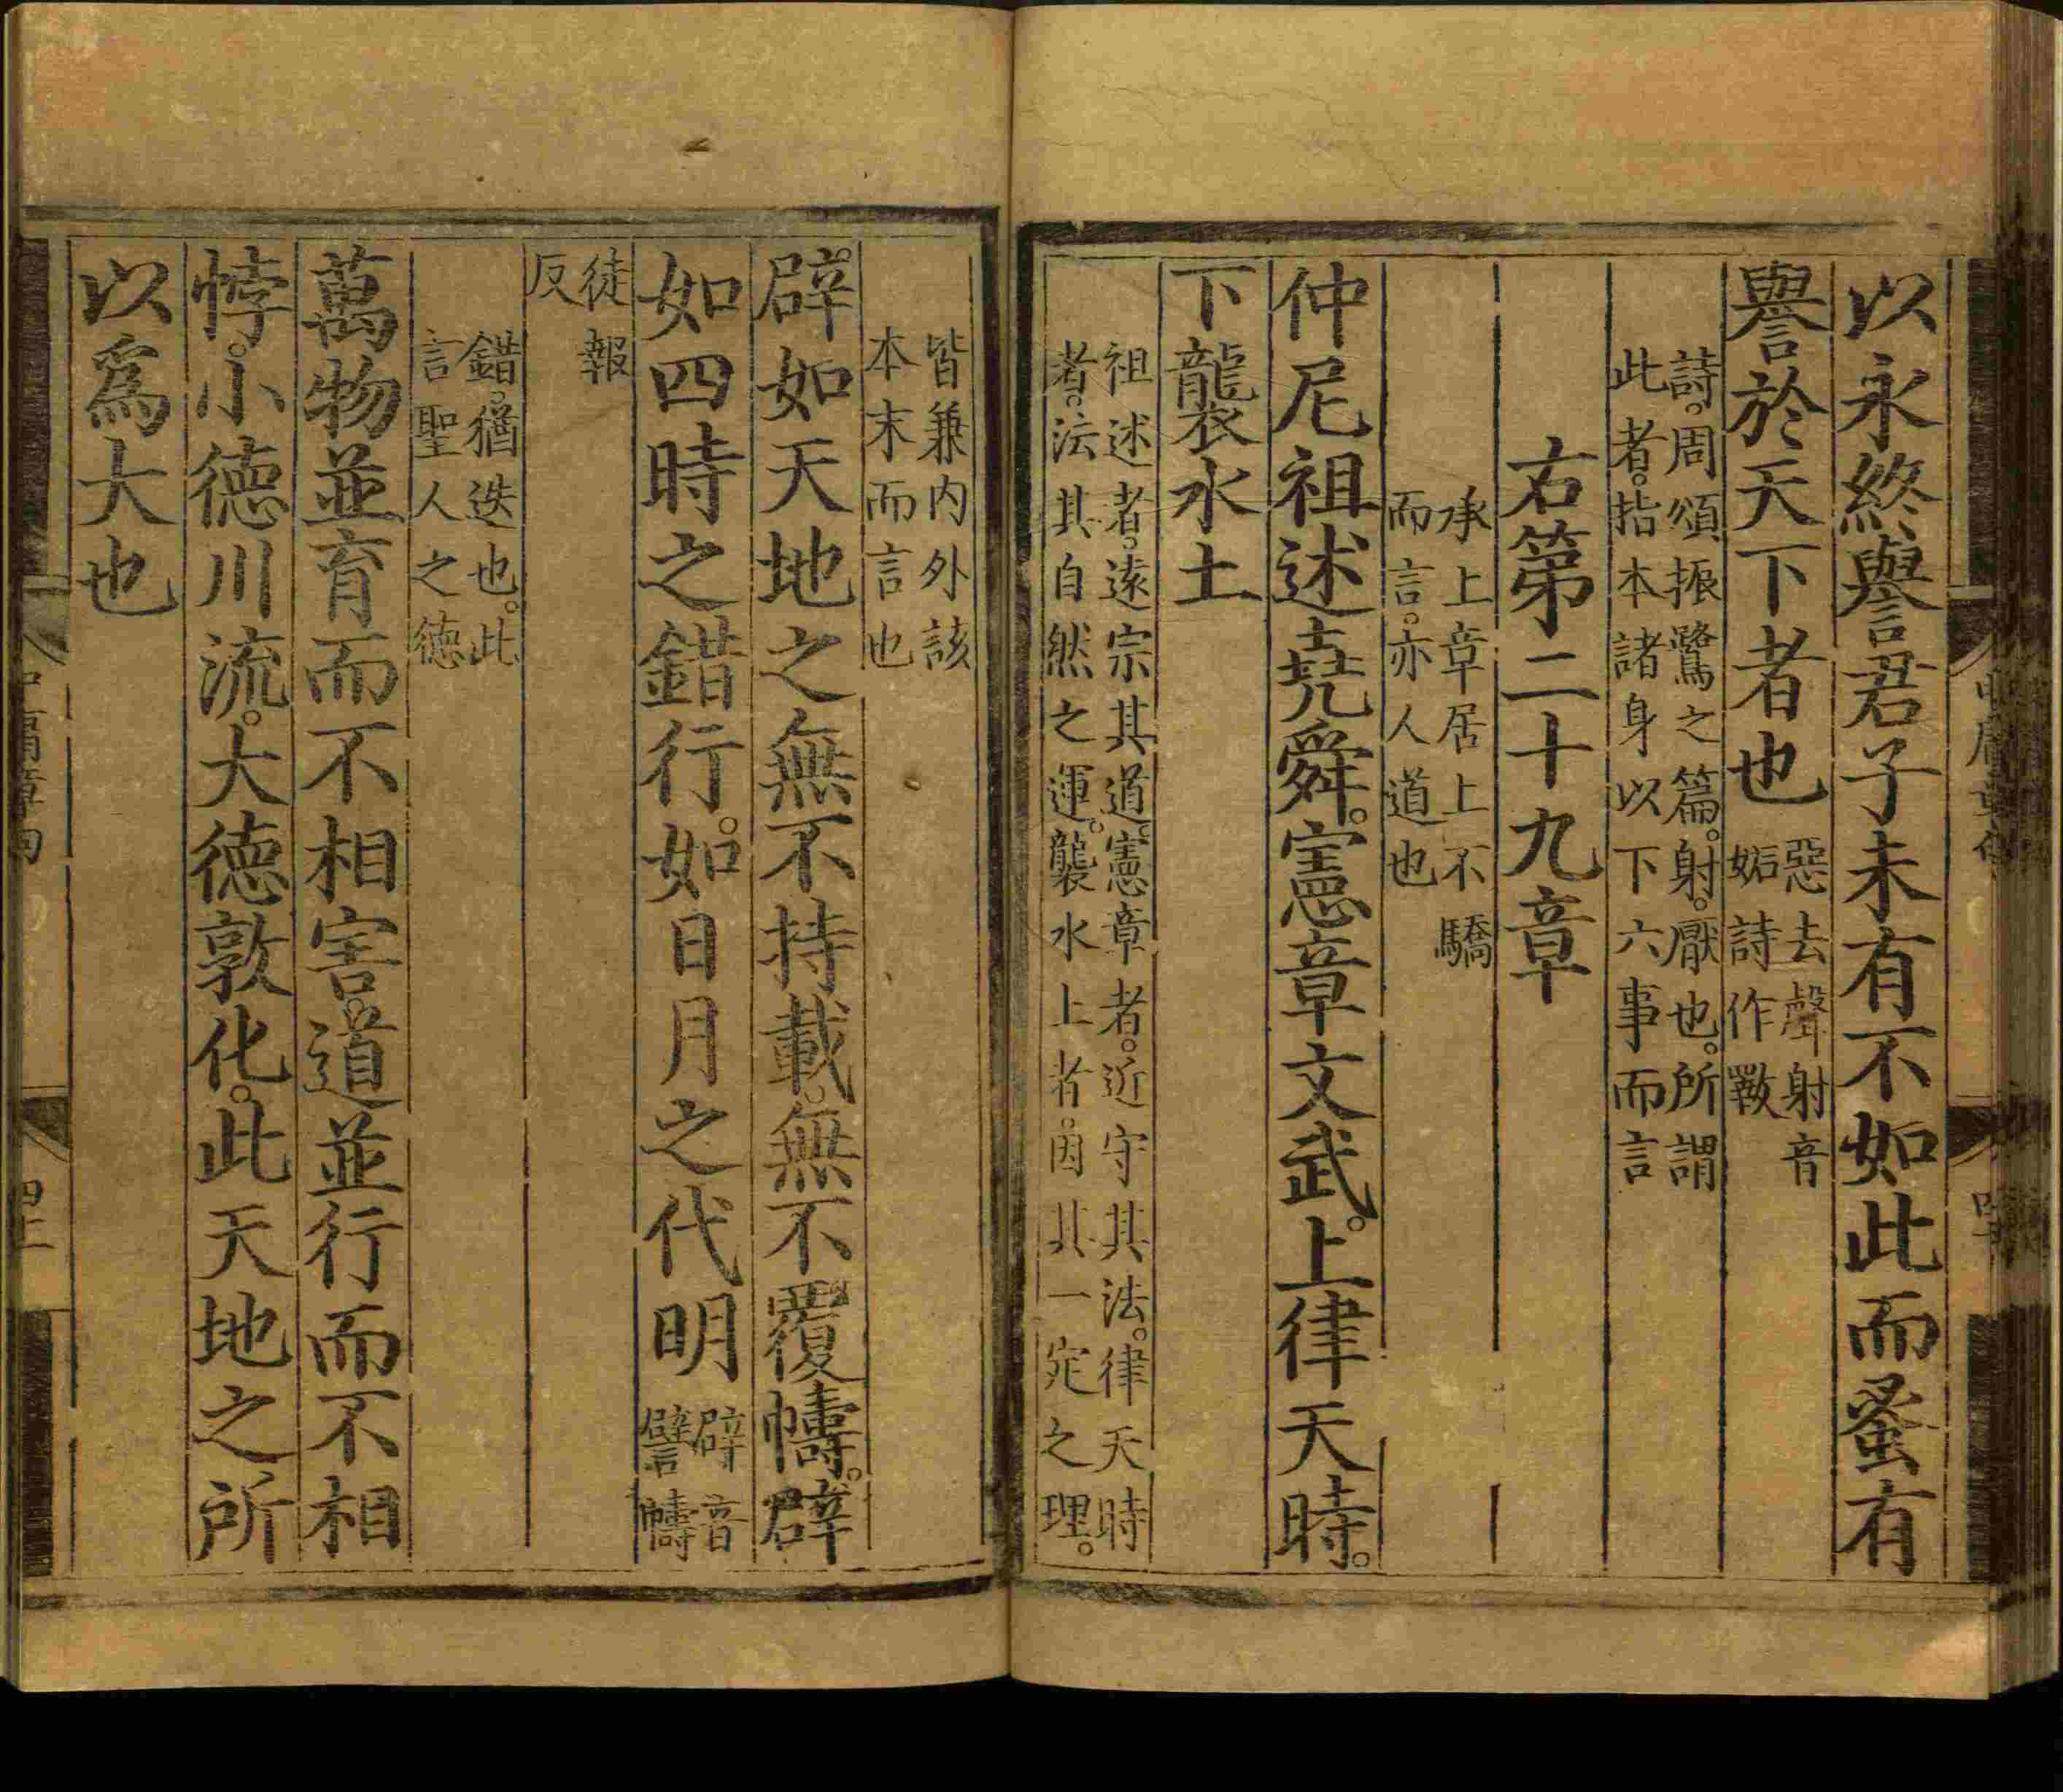 以永終譽君子未有不如此而蚤有
譽於天下者也
惡去聲射音
妬詩作斁
詩。周頌振鷺之篇。射。厭也。所謂
此者。指本諸身以下六事而言
右第二十九章
承上章居上不驕
而言。亦人道也
仲尼祖述堯舜。憲章文武。上律天時。
下襲水土
祖述者。遠宗其道。憲章者。近守其法。律天時
者。法其自然之運。襲水土者。因其一定之理。
皆兼內外該
本末而言也
辟如天地之無不持載。無不覆幬。辟
如四時之錯行。如日月之代明
辟音
譬幬
徒報
反
錯。猶迭也。此
言聖人之德
萬物並育而不相害。道並行而不相
悖。小德川流。大德敦化。此天地之所
以爲大也
四二